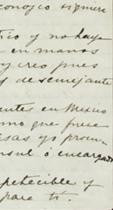 conozco siquiera
tico y no haya
en manos
y creo pues
de semejante
entes en Mexico
mo que fuese
sas yo procu-
nsul ó encargado
petecible y
para ti.